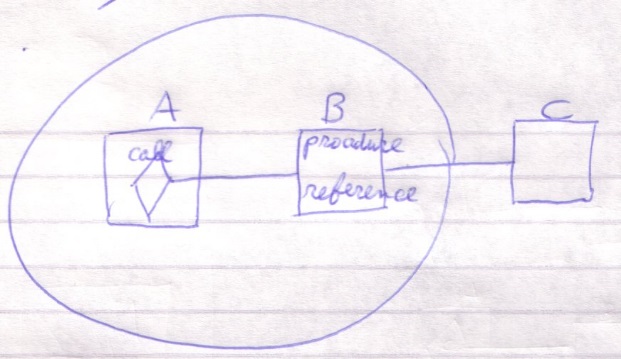 A B C
call
procedure
reference